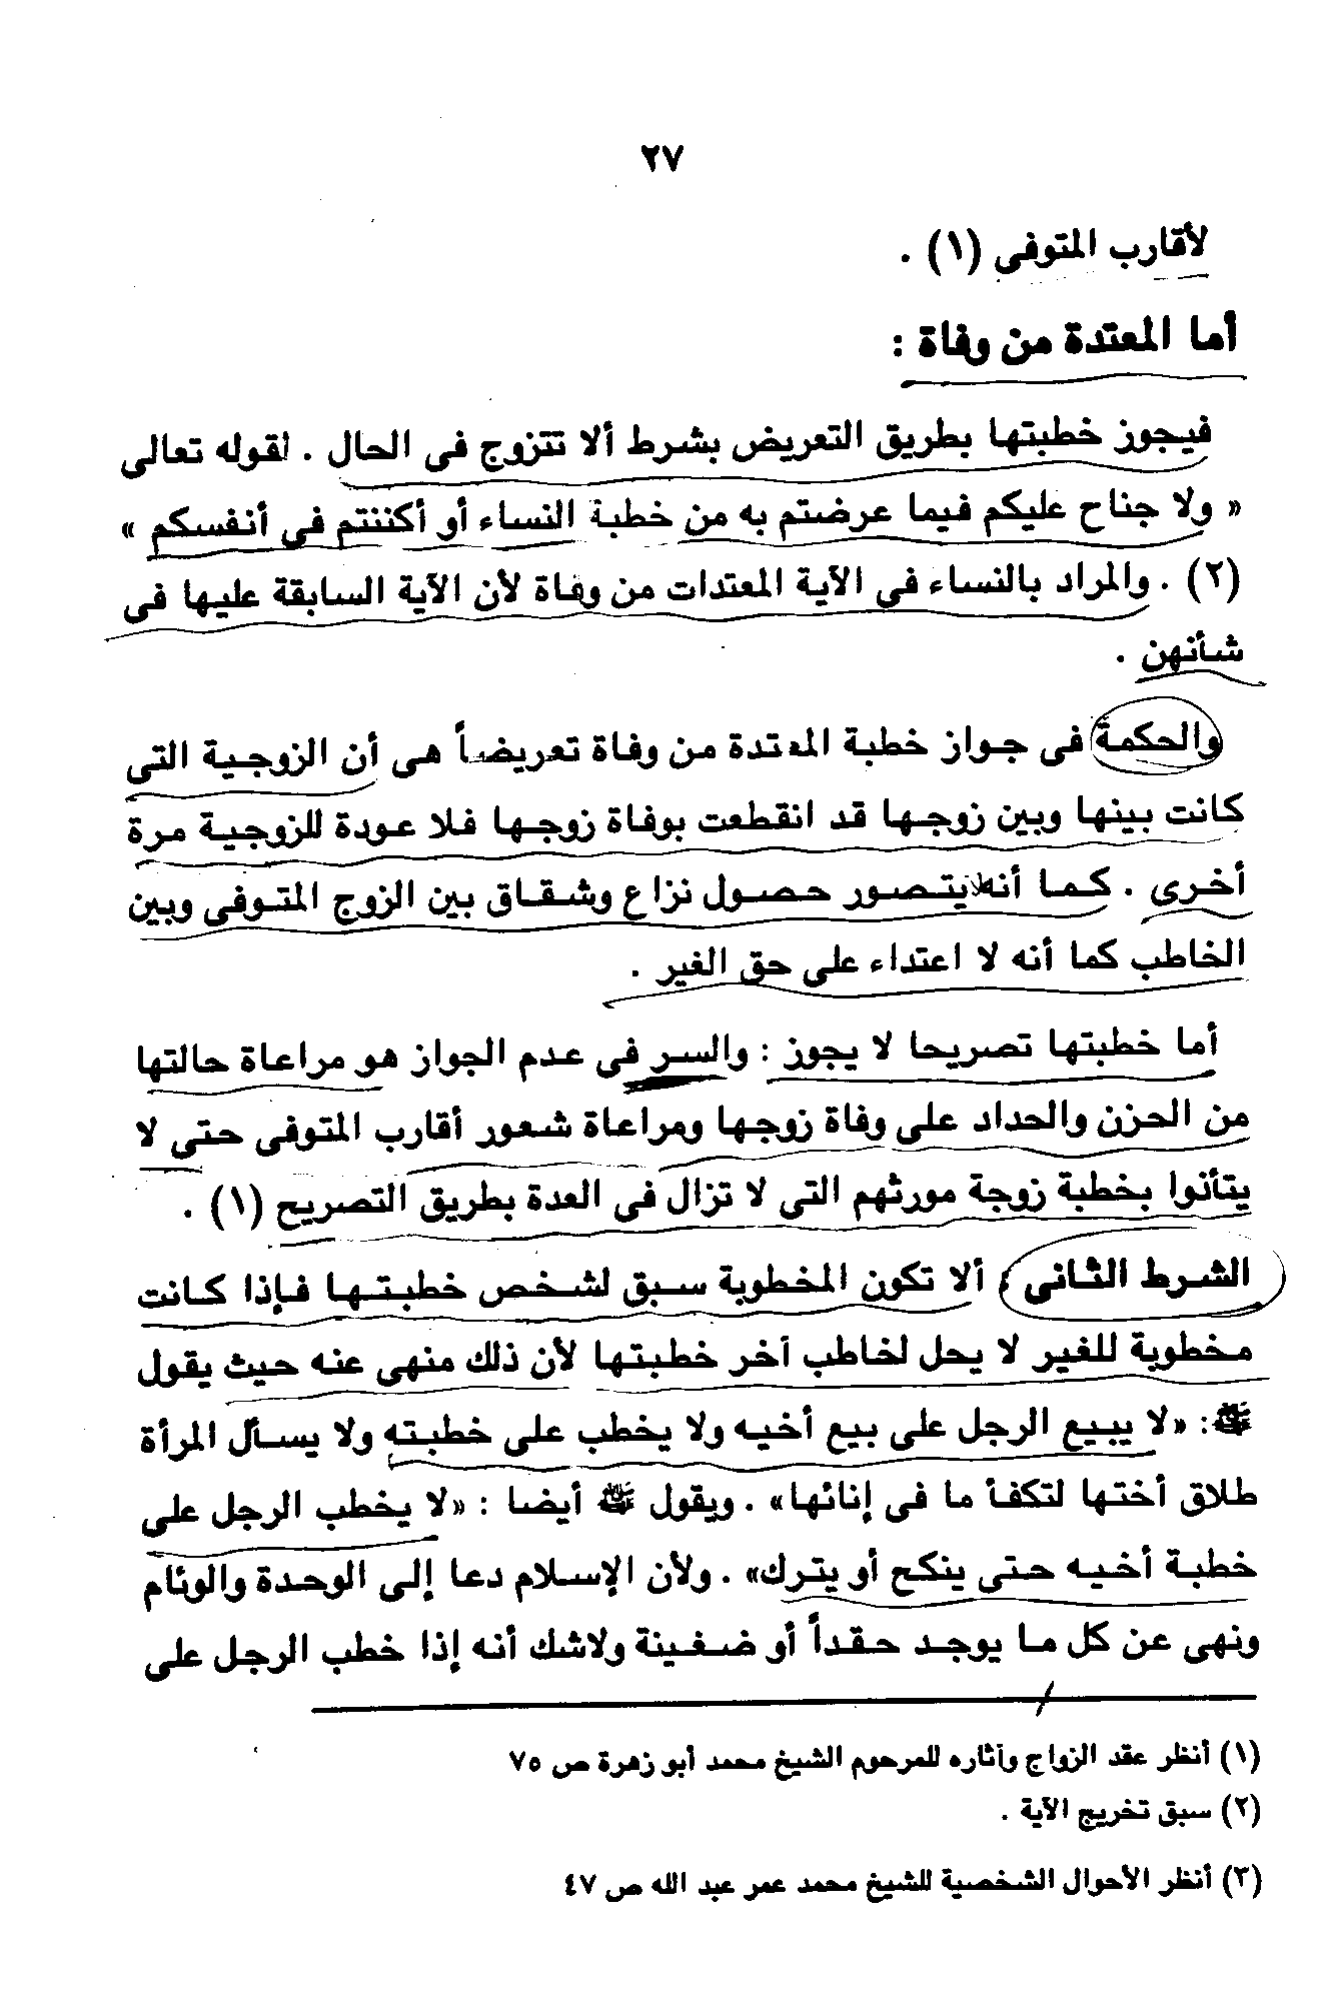 ٢٧
لأقارب المتوفى (١) .
أما المعتدة من وفاة :
فيجوز خطبتها بطريق التعريض بشرط ألا تتزوج فى الحال . لقوله تعالى
« ولا جناح عليكم فيما عرضتم به من خطبة النساء أو أكننتم فى أنفسكم »
(٢) . والمراد بالنساء فى الآية المعتدات من وفاة لأن الآية السابقة عليها فى
شأنهن .
والحكمة فى جواز خطبة المعتدة من وفاة تعريضاً هى أن الزوجية التى
كانت بينها وبين زوجها قد انقطعت بوفاة زوجها فلا عودة للزوجية مرة
أخرى . كما أنه لا يتصور حصول نزاع وشقاق بين الزوج المتوفى وبين
الخاطب كما أنه لا اعتداء على حق الغير .
أما خطبتها تصريحا لا يجوز : والسر فى عدم الجواز هو مراعاة حالتها
من الحزن والحداد على وفاة زوجها ومراعاة شعور أقارب المتوفى حتى لا
يتأنوا بخطبة زوجة مورثهم التى لا تزال فى العدة بطريق التصريح (١) .
الشرط الثانى : ألا تكون المخطوبة سبق لشخص خطبتها فإذا كانت
مخطوبة للغير لا يحل لخاطب أخر خطبتها لأن ذلك منهى عنه حيث يقول
ﷺ : «لا يبيع الرجل على بيع أخيه ولا يخطب على خطبته ولا يسأل المرأة
طلاق أختها لتكفأ ما فى إنائها» . ويقول ﷺ أيضا : «لا يخطب الرجل على
خطبة أخيه حتى ينكح أو يترك» . ولأن الإسلام دعا إلى الوحدة والوئام
ونهى عن كل ما يوجد حقداً أو ضغينة ولاشك أنه إذا خطب الرجل على
(١) أنظر عقد الزواج وآثاره للمرحوم الشيخ محمد أبو زهرة ص ٧٥
(٢) سبق تخريج الآية .
(٣) أنظر الأحوال الشخصية للشيخ محمد عمر عبد الله ص ٤٧